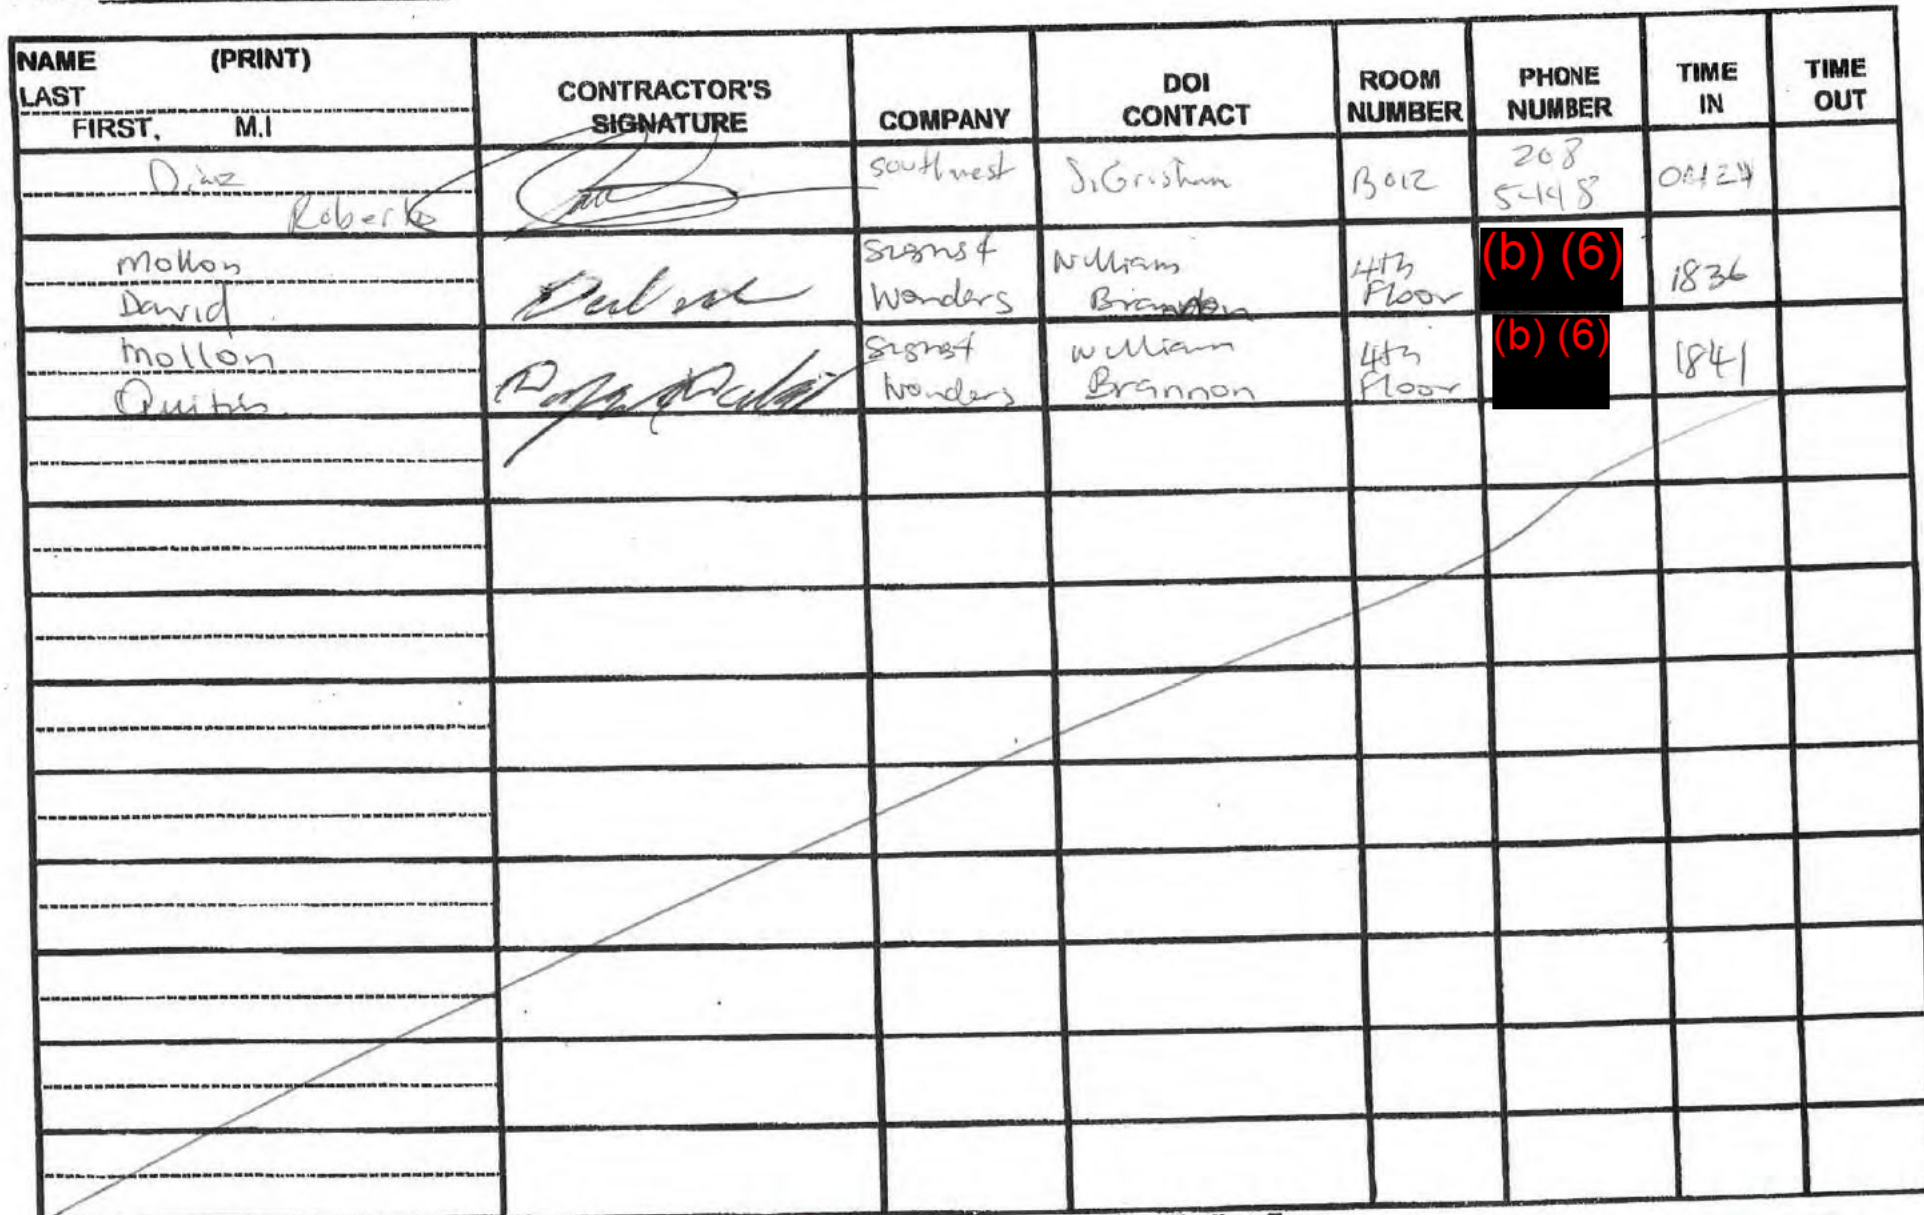 NAME (PRINT)
LAST
FIRST, M.I
CONTRACTOR'S
SIGNATURE
COMPANY
DOI
CONTACT
ROOM
NUMBER
PHONE
NUMBER
TIME
IN
TIME
OUT
Diaz
Roberto
southwest
J. Grisham
B012
208
5448
Mollon
David
Signs &
Wonders
William
Brannon
4th
Floor
(b) (6)
1836
Mollon
Signs &
Wonders
William
Brannon
4th
Floor
(b) (6)
1841